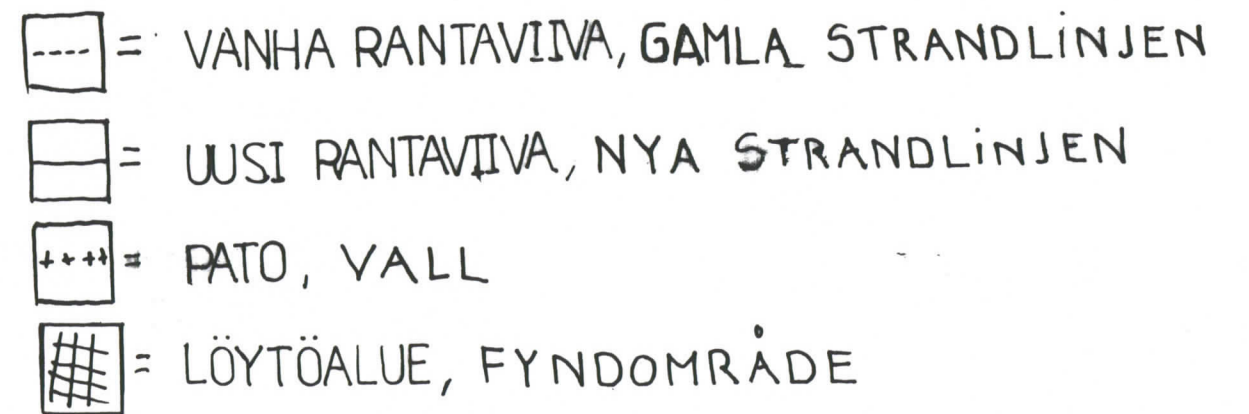 = VANHA RANTAVIIVA, GAMLA STRANDLINJEN
= UUSI RANTAVIIVA, NYA STRANDLINJEN
= PATO, VALL
= LÖYTÖALUE, FYNDOMRÅDE